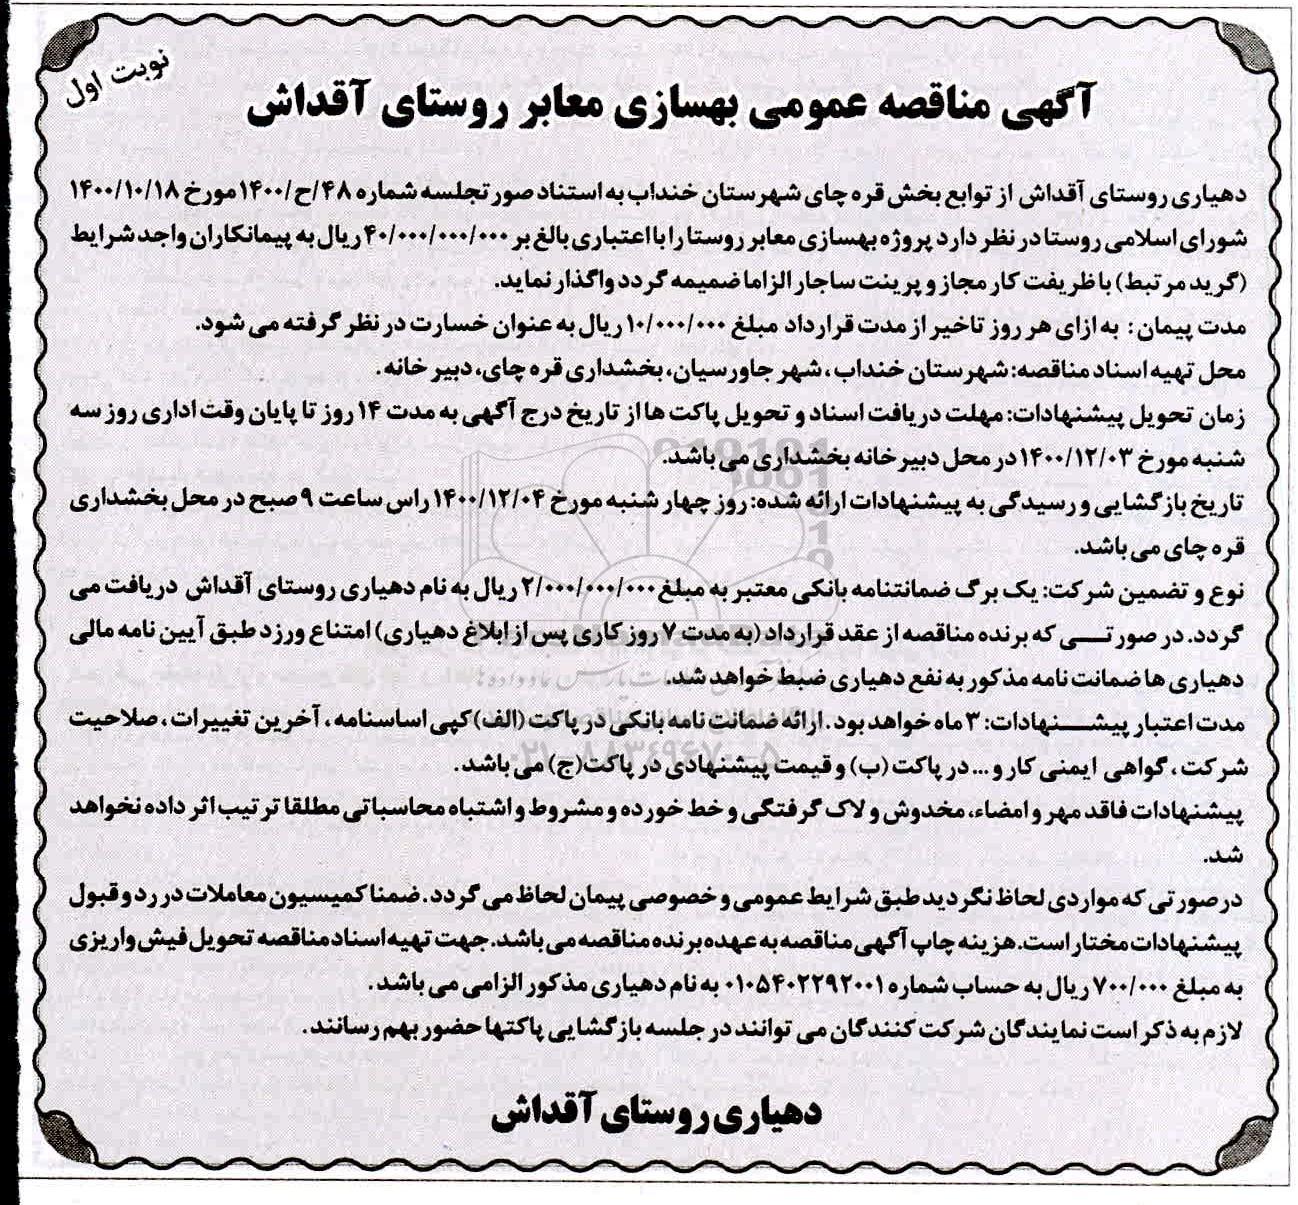 نوبت اول
آگهی مناقصه عمومی بهسازی معابر روستای آقداش
دهیاری روستای آقداش از توابع بخش قره چای شهرستان خنداب به استناد صورتجلسه شماره ۴۸/ح/۱۴۰۰ مورخ ۱۴۰۰/۱۰/۱۸
شورای اسلامی روستا در نظر دارد پروژه بهسازی معابر روستا را با اعتباری بالغ بر ۴۰/۰۰۰/۰۰۰/۰۰۰ ریال به پیمانکاران واجد شرایط
(گرید مرتبط) با ظریفت کار مجاز و پرینت ساجار الزاما ضمیمه گردد واگذار نماید.
مدت پیمان: به ازای هر روز تاخیر از مدت قرارداد مبلغ ۱۰/۰۰۰/۰۰۰ ریال به عنوان خسارت در نظر گرفته می شود.
محل تهیه اسناد مناقصه: شهرستان خنداب، شهر جاورسیان، بخشداری قره چای، دبیر خانه.
زمان تحویل پیشنهادات: مهلت دریافت اسناد و تحویل پاکت ها از تاریخ درج آگهی به مدت ۱۴ روز تا پایان وقت اداری روز سه
شنبه مورخ ۱۴۰۰/۱۲/۰۳ در محل دبیرخانه بخشداری می باشد.
تاریخ بازگشایی و رسیدگی به پیشنهادات ارائه شده: روز چهار شنبه مورخ ۱۴۰۰/۱۲/۰۴ راس ساعت ۹ صبح در محل بخشداری
قره چای می باشد.
نوع و تضمین شرکت: یک برگ ضمانتنامه بانکی معتبر به مبلغ ۲/۰۰۰/۰۰۰/۰۰۰ ریال به نام دهیاری روستای آقداش دریافت می
گردد. در صورتی که برنده مناقصه از عقد قرارداد (به مدت ۷ روز کاری پس از ابلاغ دهیاری) امتناع ورزد طبق آیین نامه مالی
دهیاری ها ضمانت نامه مذکور به نفع دهیاری ضبط خواهد شد.
مدت اعتبار پیشنهادات: ۳ ماه خواهد بود. ارائه ضمانت نامه بانکی در پاکت (الف) کپی اساسنامه، آخرین تغییرات، صلاحیت
شرکت، گواهی ایمنی کار و ... در پاکت (ب) و قیمت پیشنهادی در پاکت(ج) می باشد.
پیشنهادات فاقد مهر و امضاء، مخدوش و لاک گرفتگی و خط خورده و مشروط و اشتباه محاسباتی مطلقا ترتیب اثر داده نخواهد
شد.
درصورتی که مواردی لحاظ نگردید طبق شرایط عمومی و خصوصی پیمان لحاظ می گردد. ضمنا کمیسیون معاملات در رد و قبول
پیشنهادات مختار است. هزینه چاپ آگهی مناقصه به عهده برنده مناقصه می باشد. جهت تهیه اسناد مناقصه تحویل فیش واریزی
به مبلغ ۷۰۰/۰۰۰ ریال به حساب شماره ۰۱۰۵۴۰۲۲۹۲۰۰۱ به نام دهیاری مذکور الزامی می باشد.
لازم به ذکر است نمایندگان شرکت کنندگان می توانند در جلسه بازگشایی پاکتها حضور بهم رسانند.
دهیاری روستای آقداش